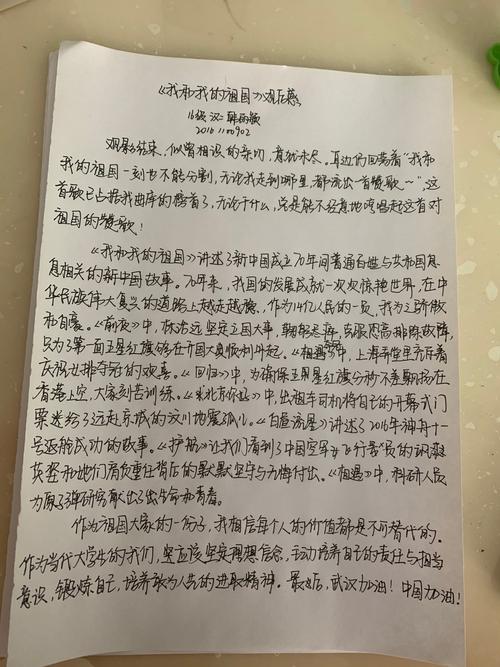 《我和我的祖国》观后感
16级 汉二
2016110902
观影结束，似曾相识的亲切，意犹未尽。耳边仍回荡着“我和
我的祖国一刻也不能分割，无论我走到哪里，都流出一首赞歌～”，这
首歌已占据我曲库的榜首了，无论干什么，总是能不经意地哼唱起这首对
祖国的赞歌！
《我和我的祖国》讲述了新中国成立70年间普通百姓与共和国息
息相关的新中国故事。70年来，我国的发展成就一次次惊艳世界，在中
华民族伟大复兴的道路上越走越稳，作为14亿人民的一员，我为之骄傲
和自豪。《前夜》中，林治远坚定立国大事，克服恐高排除故障，
只为了第一面五星红旗能够在开国大典顺利升起。《相遇》中，上海弄堂里充斥着
庆祝女排夺冠的欢喜。《回归》中，为确保五星红旗分秒不差飘扬在
香港上空，大家刻苦训练。《北京你好》中，出租车司机将自己的开幕式门
票送给了远赴京城的汶川地震孤儿。《白昼流星》讲述了2016年神舟十一
号返航成功的故事。《护航》让我们看到了中国空军女飞行员的飒爽
英姿和她们肩负重任背后的默默坚守与无悔付出。《相遇》中，科研人员
为原子弹研究献出了生命和青春。
作为祖国大家的一份子，我相信每个人的价值都是不可替代的。
作为当代大学生的我们，坚定理想信念，主动培养自己的责任与担当
意识，锻炼自己，培养敢为人先的进取精神。最后，武汉加油！中国加油！